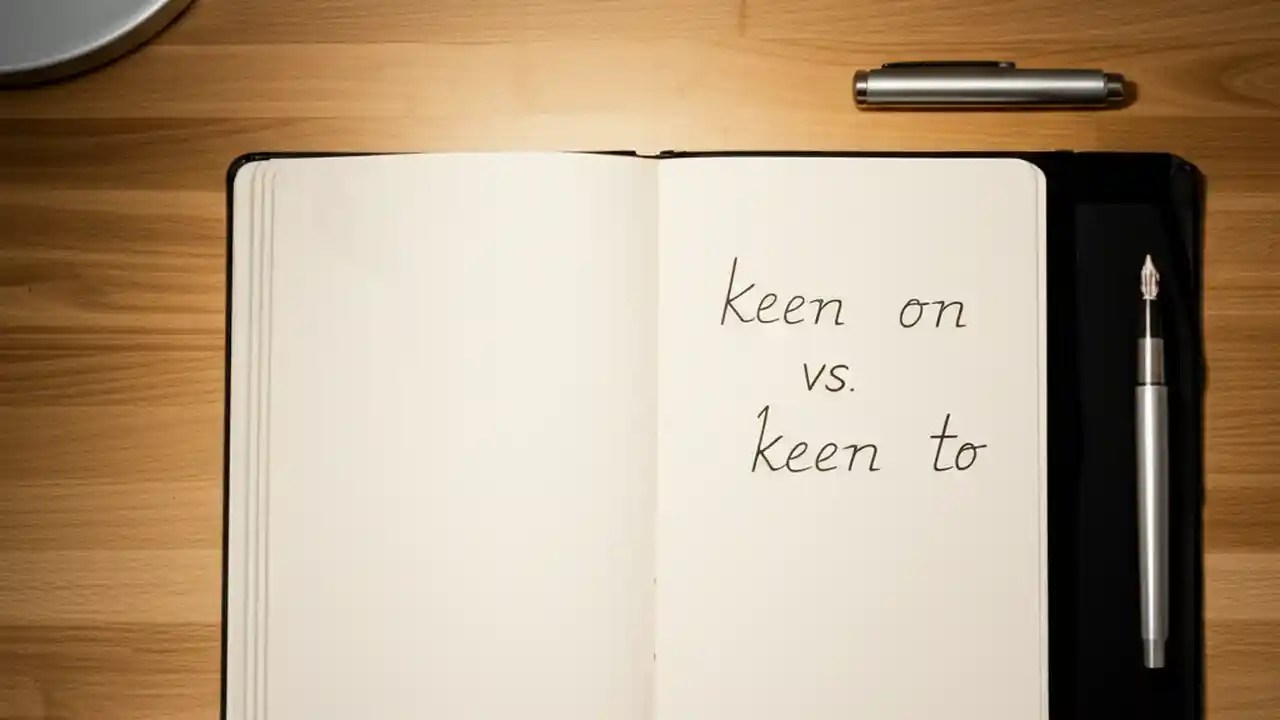 keen on
vs.
keen to